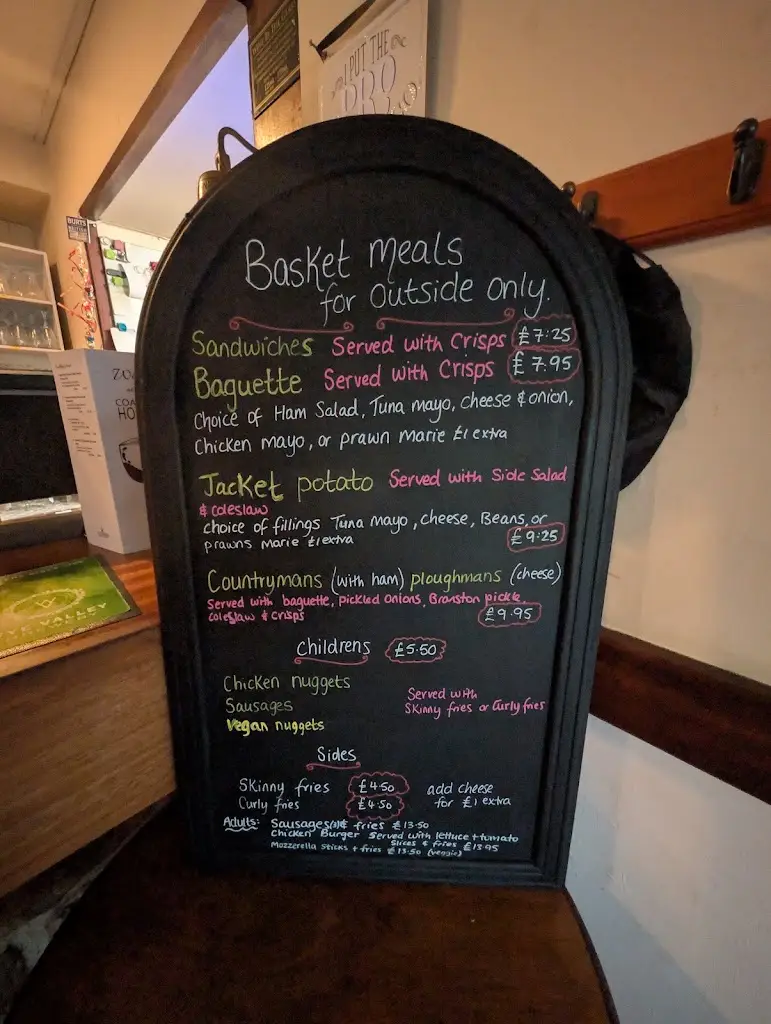 I PUT THE
PRO
BURTS
Basket meals
for outside only.
Sandwiches Served with Crisps £7.25
Baguette Served with Crisps £7.95
Choice of Ham Salad, Tuna mayo, cheese & onion,
Chicken mayo, or prawn marie £1 extra
Jacket potato Served with Side Salad
& coleslaw
choice of fillings Tuna mayo, cheese, Beans, or
prawns marie £1 extra £9.25
Countrymans (with ham) ploughmans (cheese)
Served with baguette, pickled onions, Branston pickle,
coleslaw & crisps £9.95
Childrens £5.50
Chicken nuggets
Sausages
Vegan nuggets
Served with
Skinny fries or Curly fries
Sides
Skinny fries £4.50
Curly fries £4.50
add cheese
for £1 extra
Adults: Sausages & fries £13.50
Chicken Burger served with lettuce + tomato
slices & fries £13.95
Mozzerella sticks + fries £13.50 (veggie)